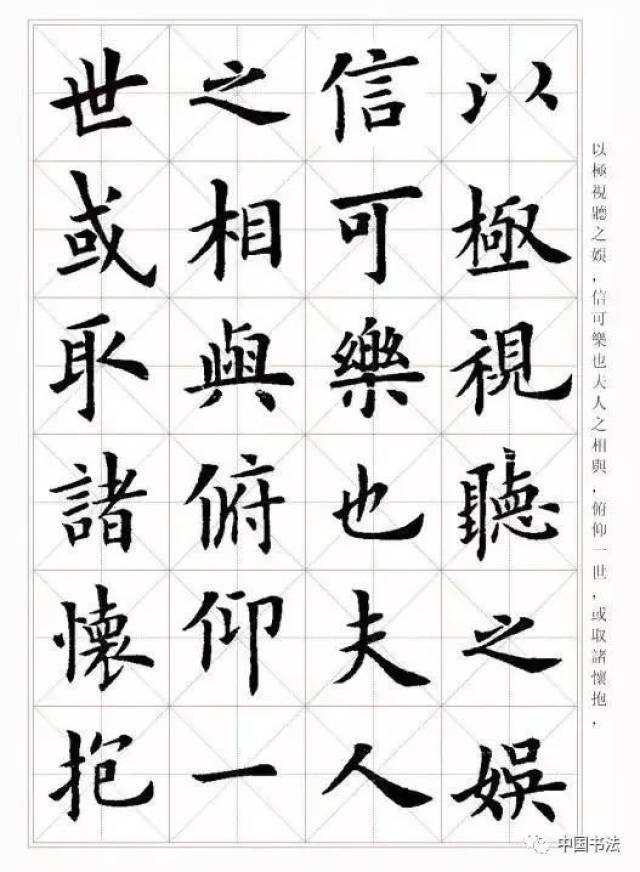 以極視聽之娛
信可樂也夫人
之相與俯仰一
世或取諸懷抱
以極視聽之娛，信可樂也夫人之相與，俯仰一世，或取諸懷抱，
中国书法